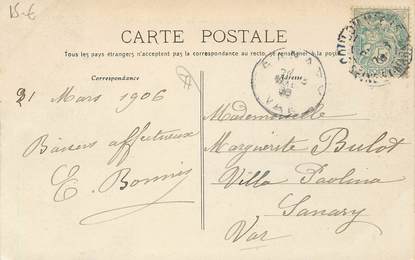 15 €
CARTE POSTALE
Tous les pays étrangers n'acceptent pas la correspondance au recto, se renseigner à la poste
Correspondance
Adresse
21 Mars 1906
Baisers affectueux
E. Bonnis
SANARY
VAR
Mademoiselle
Marguerite Bulot
Villa Paolina
Sanary
Var